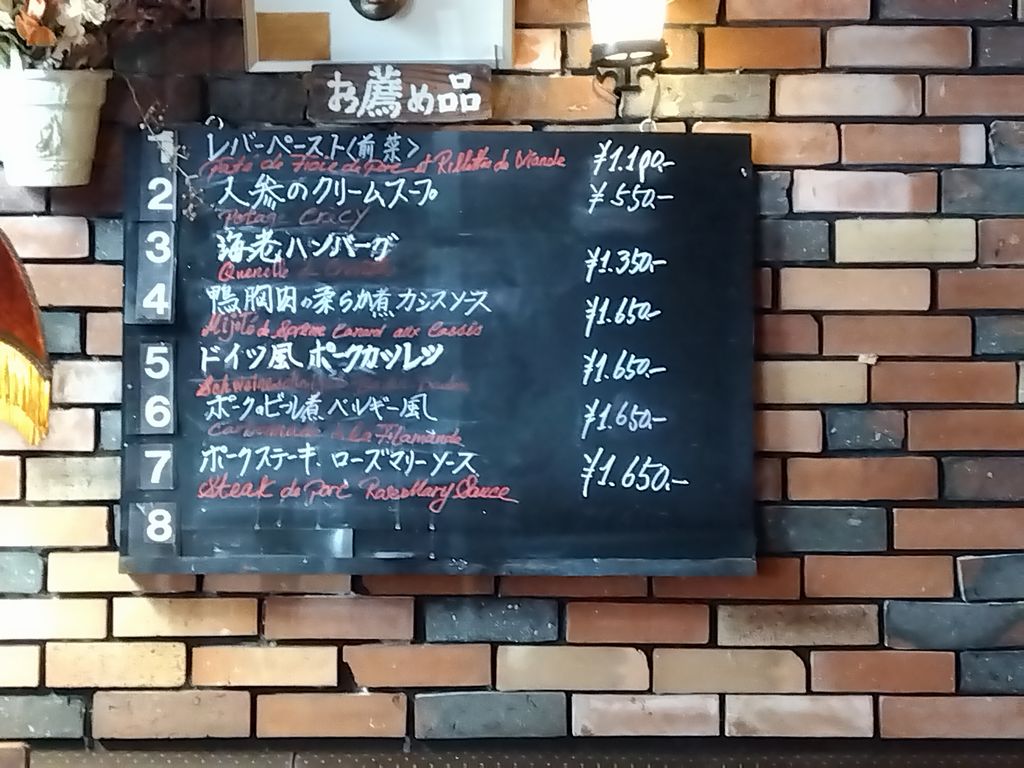 お薦め品
1 レバーペースト〈前菜〉 ¥1.100.-
de Foie de Porc et Rillettes de Viande
2 人参のクリームスープ ¥550.-
Potage Crecy
3 海老ハンバーグ ¥1.350.-
Quenelle de
4 鴨胸肉の柔らか煮カシスソース ¥1.650.-
Mijoté de Suprême Canard aux Cassis
5 ドイツ風ポークカツレツ ¥1.650.-
6 ポークのビール煮ベルギー風 ¥1.650.-
Carbonnade à La Flamande
7 ポークステーキ、ローズマリーソース ¥1.650.-
Steak de Porc RoseMary Sauce
8